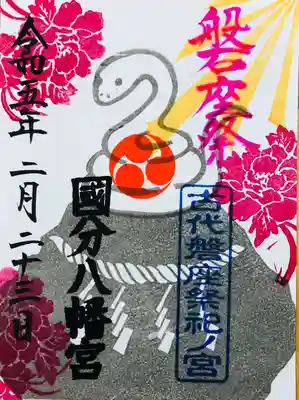 磐座祭
古代磐座祭祀ノ宮
國分八幡宮
令和五年 二月 二十三日